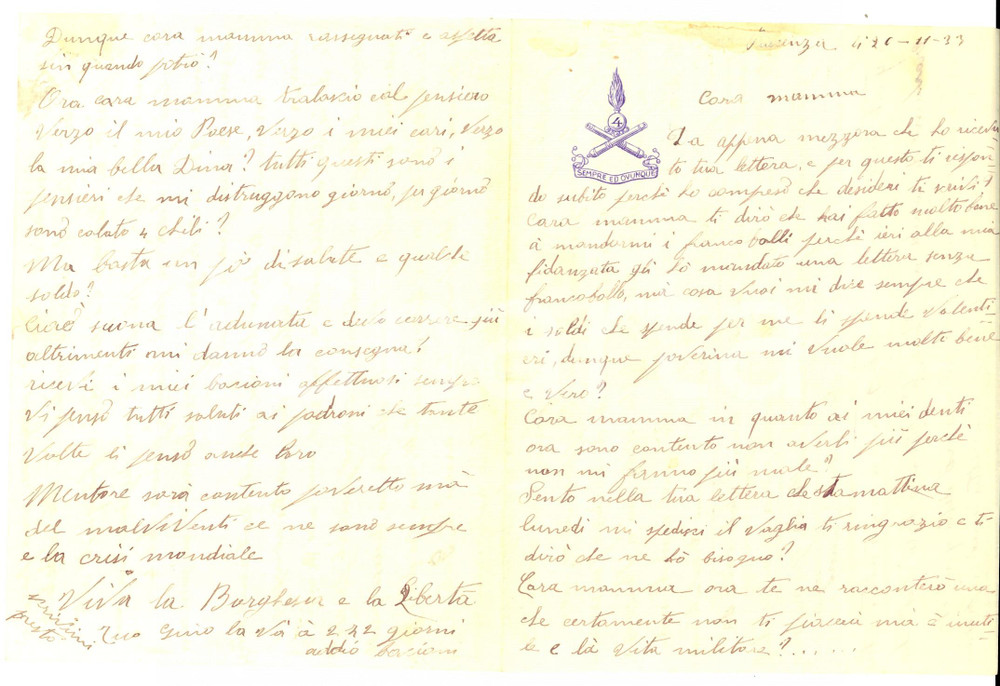 Piacenza li 20-11-33
4
SEMPRE ED OVUNQUE
Cara mamma
La appena mezzora che ho ricevu
to tua lettera, e per questo ti rispon
do subito perchè ho compreso che desideri ti scrivi!
Cara mamma ti dirò che hai fatto molto bene
à mandarmi i francobolli perchè ieri alla mia
fidanzata gli hò mandato una lettera senza
francobollo, mà cosa vuoi mi dice sempre che
i soldi che spende per me li spende volenti
eri, dunque poverina mi vuole molto bene
e vero?
Cara mamma in quanto ai miei denti
ora sono contento non averli più perchè
non mi fanno più male?
Sento nella tua lettera che stamattina
lunedi mi spedisci il vaglia ti ringrazio e ti
dirò che ne hò bisogno?
Cara mamma ora te ne racconterò una
che certamente non ti piacerà mà è inuti
le e là vita militare?......
Dunque cara mamma rassegnati e aspetta
sin quando potrò?
Ora cara mamma tralascio col pensiero
verzo il mio Paese, verzo i miei cari, verzo
la mia bella Dina? tutti questi sono i
pensieri che mi distruggono giorno, per giorno
sono calato 4 chili?
Ma basta un pò di salute e qualche
soldo?
Ciao suona l'adunata e devo correre più
altrimenti mi danno la consegna!
ricevi i miei bacioni affettuosi sempre
vi penso tutti saluti ai padroni che tante
volte li penso anche loro
Mentore sarà contento poveretto mà
del malviventi ce ne sono sempre
e la crisi mondiale
Viva la Borghesia e la Libertà
scrivimi
presto
tuo Gino la và à 242 giorni
addio bacioni